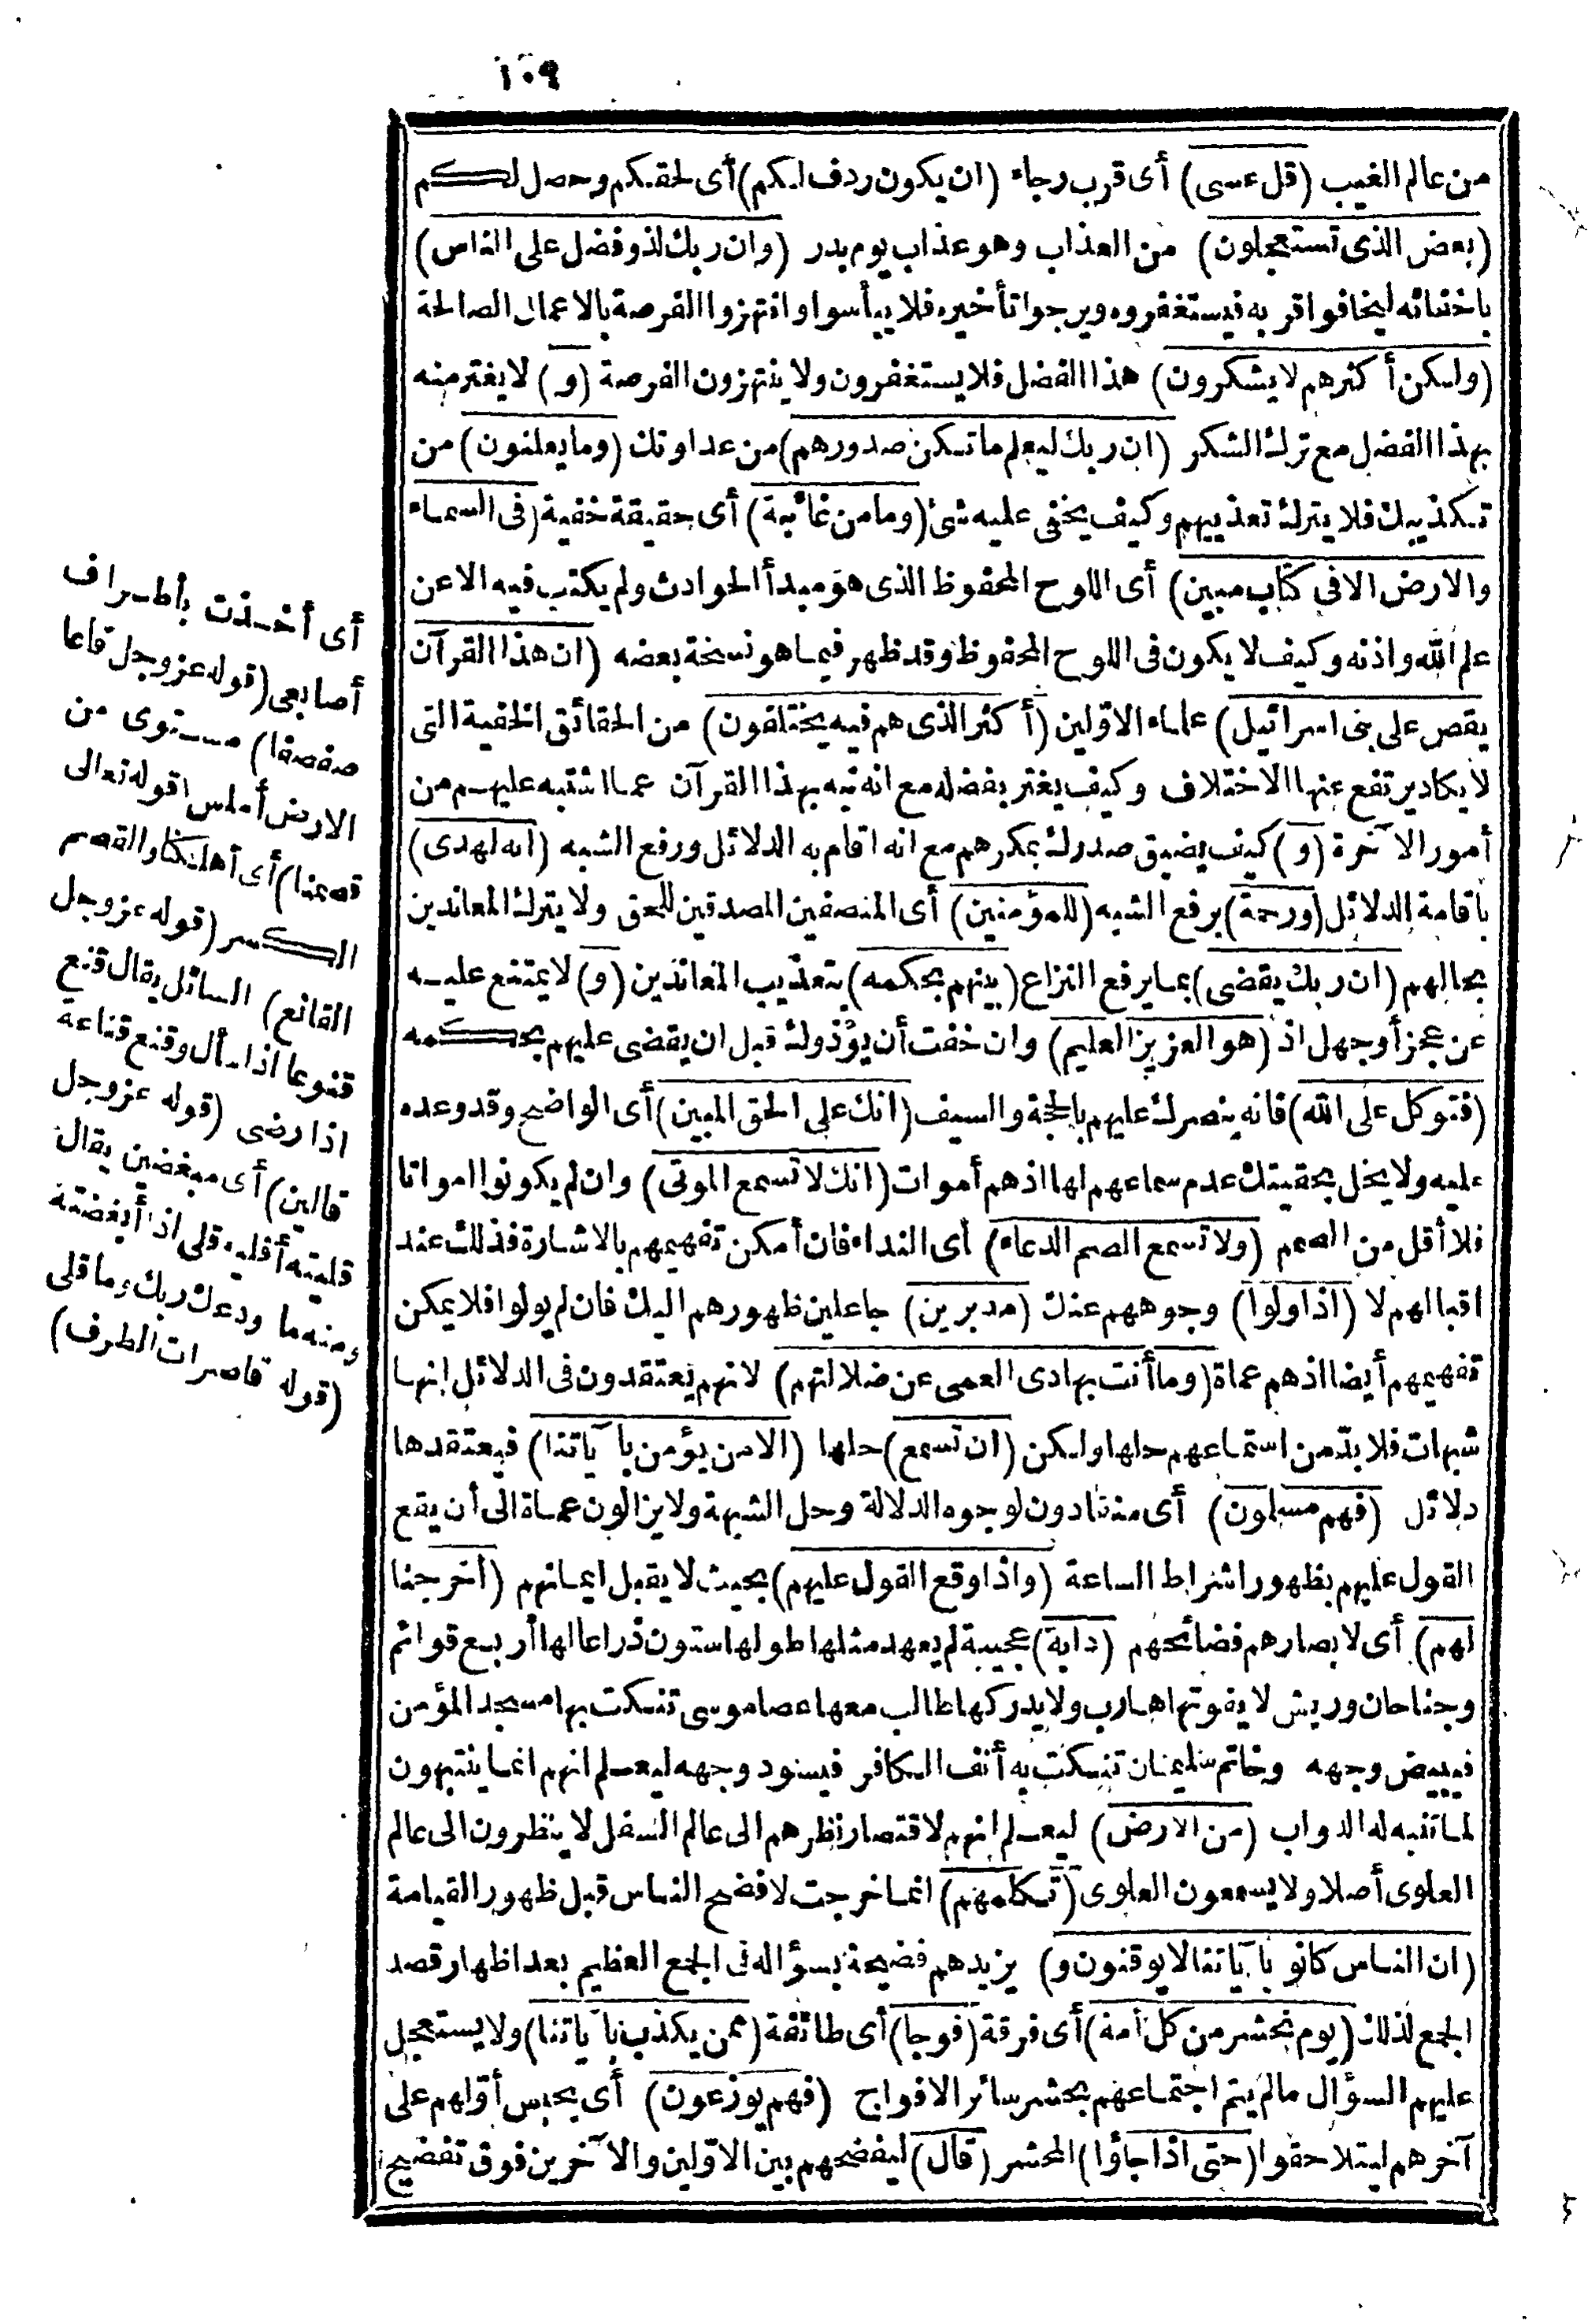 ١٠٩
من عالم الغيب (قل عسى) أى قرب رجاء (ان يكون ردف لكم) أى لحقكم وحصل لكم
(بعض الذى تستعجلون) من العذاب وهو عذاب يوم بدر (وان ربك لذو فضل على الناس)
باخفائه ليخافوا قربه فيستغفروه ويرجوا تأخيره فلا ييأسوا وانتهزوا الفرصة بالاعمال الصالحة
(ولكن أكثرهم لا يشكرون) هذا الفضل فلا يستغفرون ولا ينتهزون الفرصة (و) لا يغتر منه
بهذا الفضل مع ترك الشكر (ان ربك ليعلم ما تكن صدورهم) من عداوتك (وما يعلنون) من
تكذيبك فلا يترك تعذيبهم وكيف يخفى عليه شئ (وما من غائبة) أى حقيقة خفية (فى السماء
والارض الا فى كتاب مبين) أى اللوح المحفوظ الذى هو مبدأ الحوادث ولم يكتب فيه الا عن
علم الله واذنه وكيف لا يكون فى اللوح المحفوظ وقد ظهر فيما هو نسخة بعضه (ان هذا القرآن
يقص على بنى اسرائيل) علماء الاوّلين (أكثر الذى هم فيه يختلفون) من الحقائق الخفية التى
لا يكاد يرتفع عنها الاختلاف وكيف يغتر بفضله مع انه نبه بهذا القرآن عما اشتبه عليهم من
أمور الآخرة (و) كيف يضيق صدرك بمكرهم مع انه اقام به الدلائل ورفع الشبه (انه لهدى)
باقامة الدلائل (ورحمة) برفع الشبه (للمؤمنين) أى المنصفين المصدقين للحق ولا يترك المعاندين
بحالهم (ان ربك يقضى) بما يرفع النزاع (بينهم بحكمه) بتعذيب المعاندين (و) لا يمتنع عليه
عن عجز أو جهل اذ (هو العزيز العليم) وان خفت أن يؤذوك قبل ان يقضى عليهم بحكمه
(فتوكل على الله) فانه ينصرك عليهم بالحجة والسيف (انك على الحق المبين) أى الواضح وقد وعده
عليه ولا يخل بحقيتك عدم سماعهم لها اذ هم أموات (انك لا تسمع الموتى) وان لم يكونوا امواتا
فلا أقل من الصمم (ولا تسمع الصم الدعاء) أى النداء فان أمكن تفهيمهم بالاشارة فذلك عند
اقبالهم لا (اذا ولوا) وجوههم عنك (مدبرين) جاعلين ظهورهم اليك فان لم يولوا فلا يمكن
تفهيمهم أيضا اذ هم عماة (وما أنت بهادى العمى عن ضلالتهم) لانهم يعتقدون فى الدلائل انها
شبهات فلا بدّ من استماعهم حلها ولكن (ان تسمع) حلها (الا من يؤمن بآياتنا) فيعتقدها
دلائل (فهم مسلمون) أى منقادون لوجوه الدلالة وحل الشبهة ولا يزالون عماة الى أن يقع
القول عليهم بظهور اشراط الساعة (واذا وقع القول عليهم) بحيث لا يقبل ايمانهم (أخرجنا
لهم) أى لابصارهم فضائحهم (دابة) عجيبة لم يعهد مثلها طولها ستون ذراعا لها أربع قوائم
وجناحان وريش لا يفوتها هارب ولا يدركها طالب معها عصا موسى تنكت بها مسجد المؤمن
فيبيض وجهه وخاتم سليمان تنكت به أنف الكافر فيسود وجهه ليعلم انهم انما ينتبهون
لما تنبه له الدواب (من الارض) ليعلم انهم لاقتصار نظرهم الى عالم السفل لا ينظرون الى عالم
العلوى أصلا ولا يسمعون العلوى (تكلمهم) انما خرجت لافضح الناس قبل ظهور القيامة
(ان الناس كانو بآياتنا لا يوقنون و) يزيدهم فضيحة بسؤاله فى الجمع العظيم بعد اظهار قصد
الجمع لذلك (يوم نحشر من كل أمة) أى فرقة (فوجا) أى طائفة (ممن يكذب بآياتنا) ولا يستعجل
عليهم السؤال ما لم يتم اجتماعهم بحشر سائر الافواج (فهم يوزعون) أى يحبس أوّلهم على
آخرهم ليتلاحقوا (حتى اذا جاؤا) المحشر (قال) ليفضحهم بين الاوّلين والآخرين فوق تفضيح
أى أخذت بأطراف
أصابعى (قوله عز وجل قاعا
صفصفا) مستوى من
الارض أملس (قوله تعالى
قصمنا) أى أهلكنا والقصم
الكسر (قوله عز وجل
القانع) السائل يقال قنع
قنوعا اذا سأل وقنع قناعة
اذا رضى (قوله عز وجل
قالين) أى مبغضين يقال
قليته أقليه قلى اذا أبغضته
ومنه ما ودعك ربك وما قلى
(قوله قاصرات الطرف)